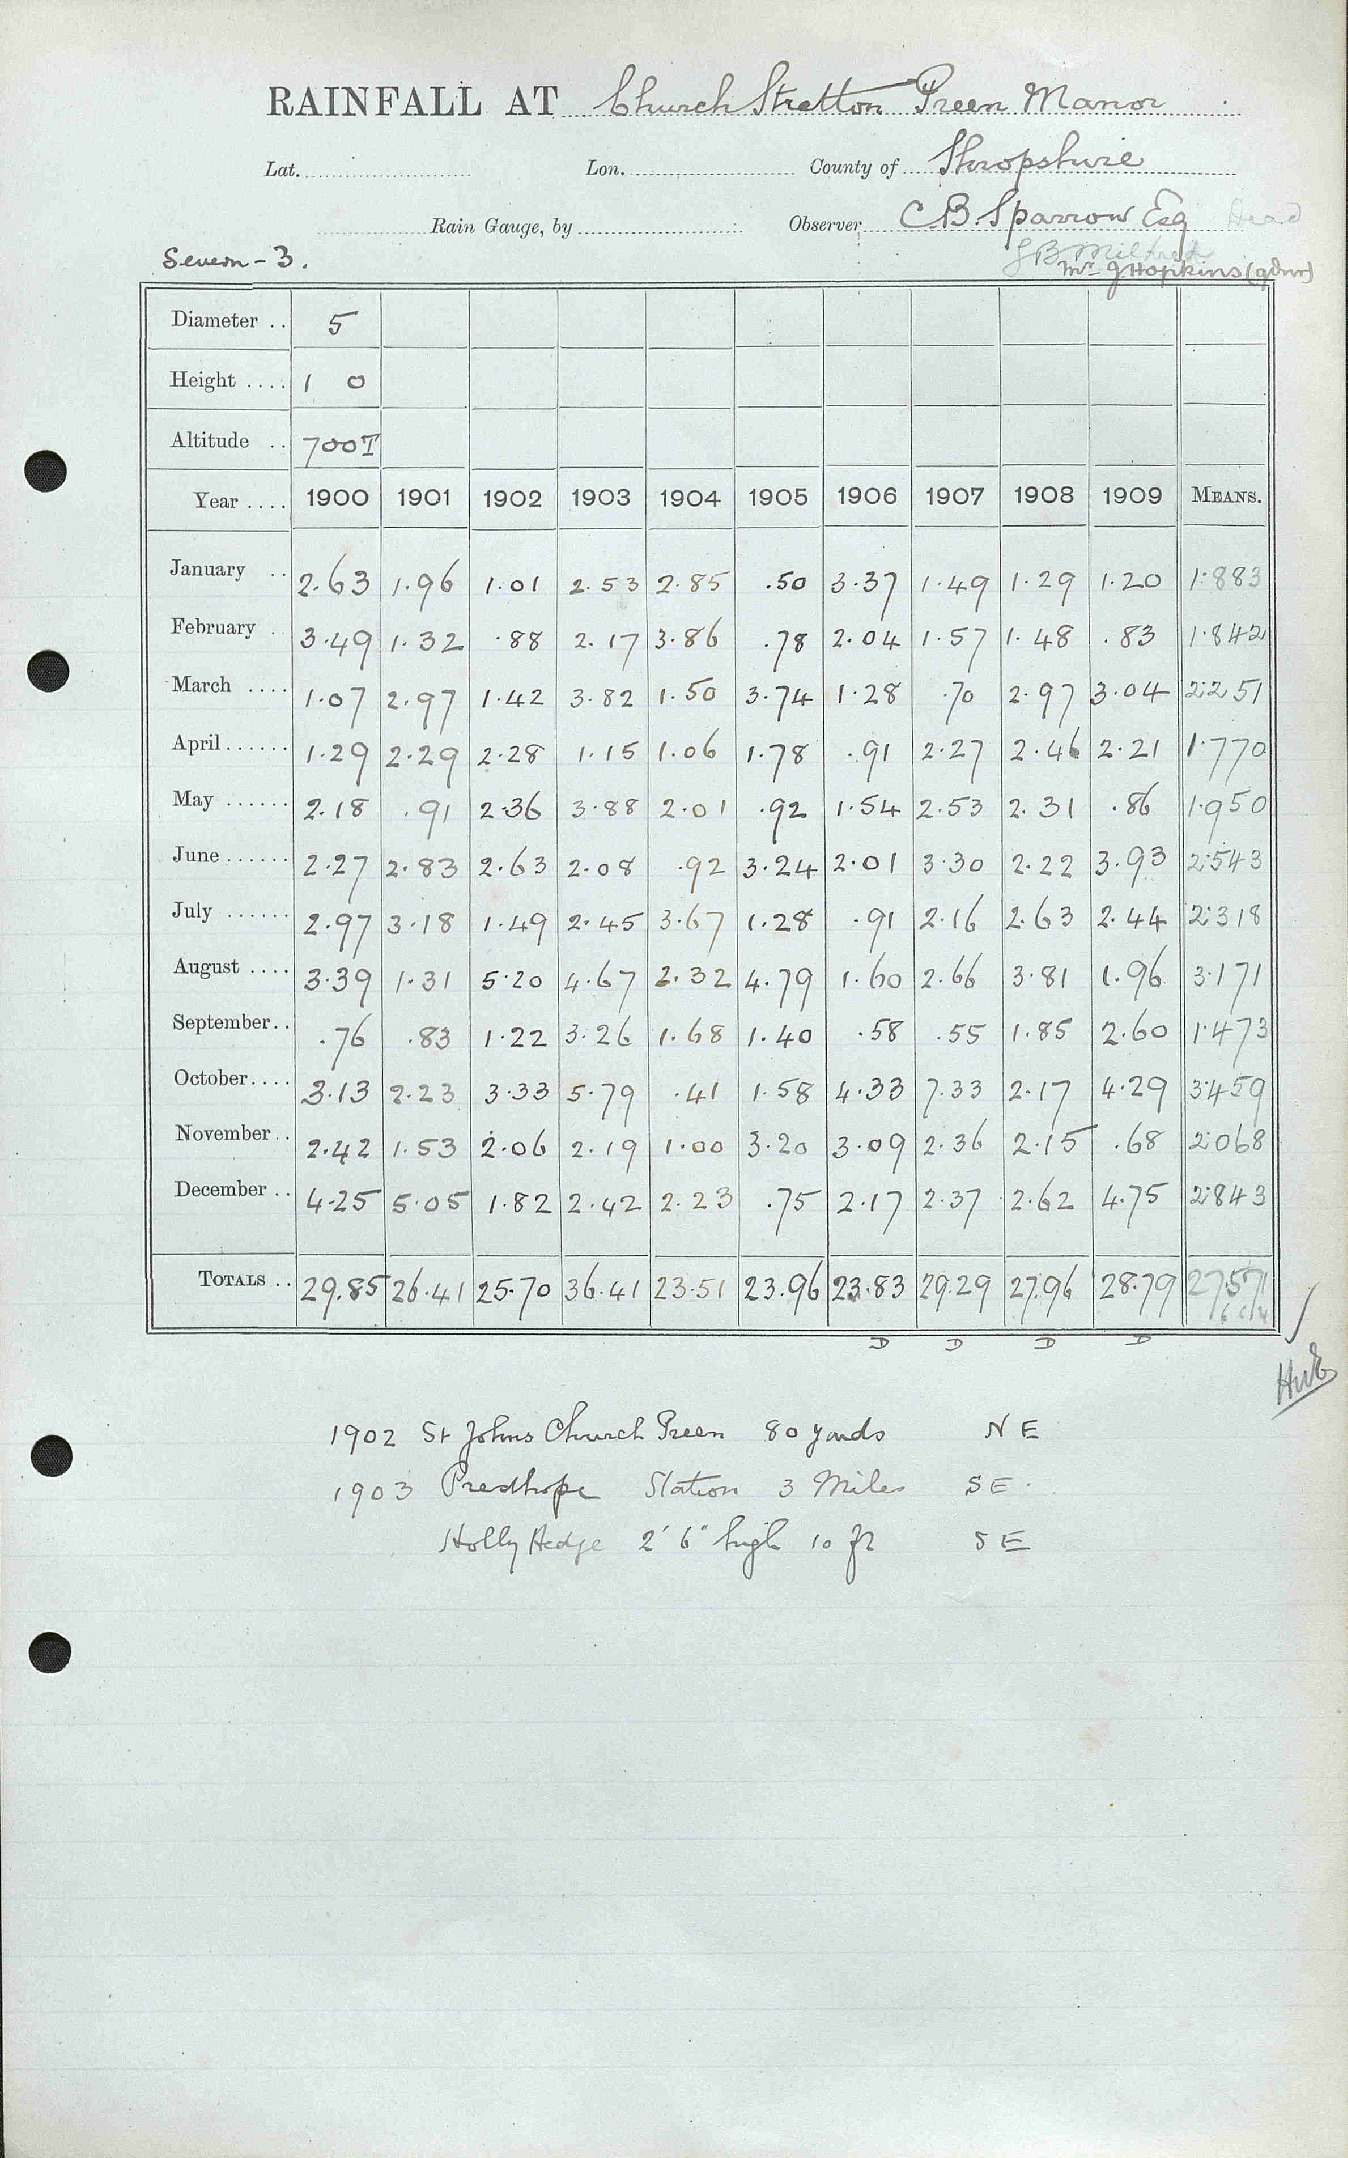 RAINFALL AT Church Stretton Preen Manor
Lat. Lon. County of Shropshire
Rain Gauge, by Observer C B Sparrow Esq Dead
Severn - 3.
Mr J Hopkins (gdnr)
Diameter .. 5
Height .... 1 0
Altitude .. 700T
Year .... 1900 1901 1902 1903 1904 1905 1906 1907 1908 1909 MEANS.
January .. 2.63 1.96 1.01 2.53 2.85 .50 3.37 1.49 1.29 1.20 1.883
February . 3.49 1.32 .88 2.17 3.86 .78 2.04 1.57 1.48 .83 1.842
March .... 1.07 2.97 1.42 3.82 1.50 3.74 1.28 .70 2.97 3.04 2.251
April...... 1.29 2.29 2.28 1.15 1.06 1.78 .91 2.27 2.46 2.21 1.770
May ...... 2.18 .91 2.36 3.88 2.01 .92 1.54 2.53 2.31 .86 1.950
June...... 2.27 2.83 2.63 2.08 .92 3.24 2.01 3.30 2.22 3.93 2.543
July ...... 2.97 3.18 1.49 2.45 3.67 1.28 .91 2.16 2.63 2.44 2.318
August .... 3.39 1.31 5.20 4.67 2.32 4.79 1.60 2.66 3.81 1.96 3.171
September.. .76 .83 1.22 3.26 1.68 1.40 .58 .55 1.85 2.60 1.473
October.... 3.13 2.23 3.33 5.79 .41 1.58 4.33 7.33 2.17 4.29 3.459
November.. 2.42 1.53 2.06 2.19 1.00 3.20 3.09 2.36 2.15 .68 2.068
December .. 4.25 5.05 1.82 2.42 2.23 .75 2.17 2.37 2.62 4.75 2.843
TOTALS .. 29.85 26.41 25.70 36.41 23.51 23.96 23.83 29.29 27.96 28.79 27.571
D D D D
1902 St Johns Church Preen 80 yards NE
1903 Presthope Station 3 Miles SE.
Holly Hedge 2' 6" high 10 ft SE